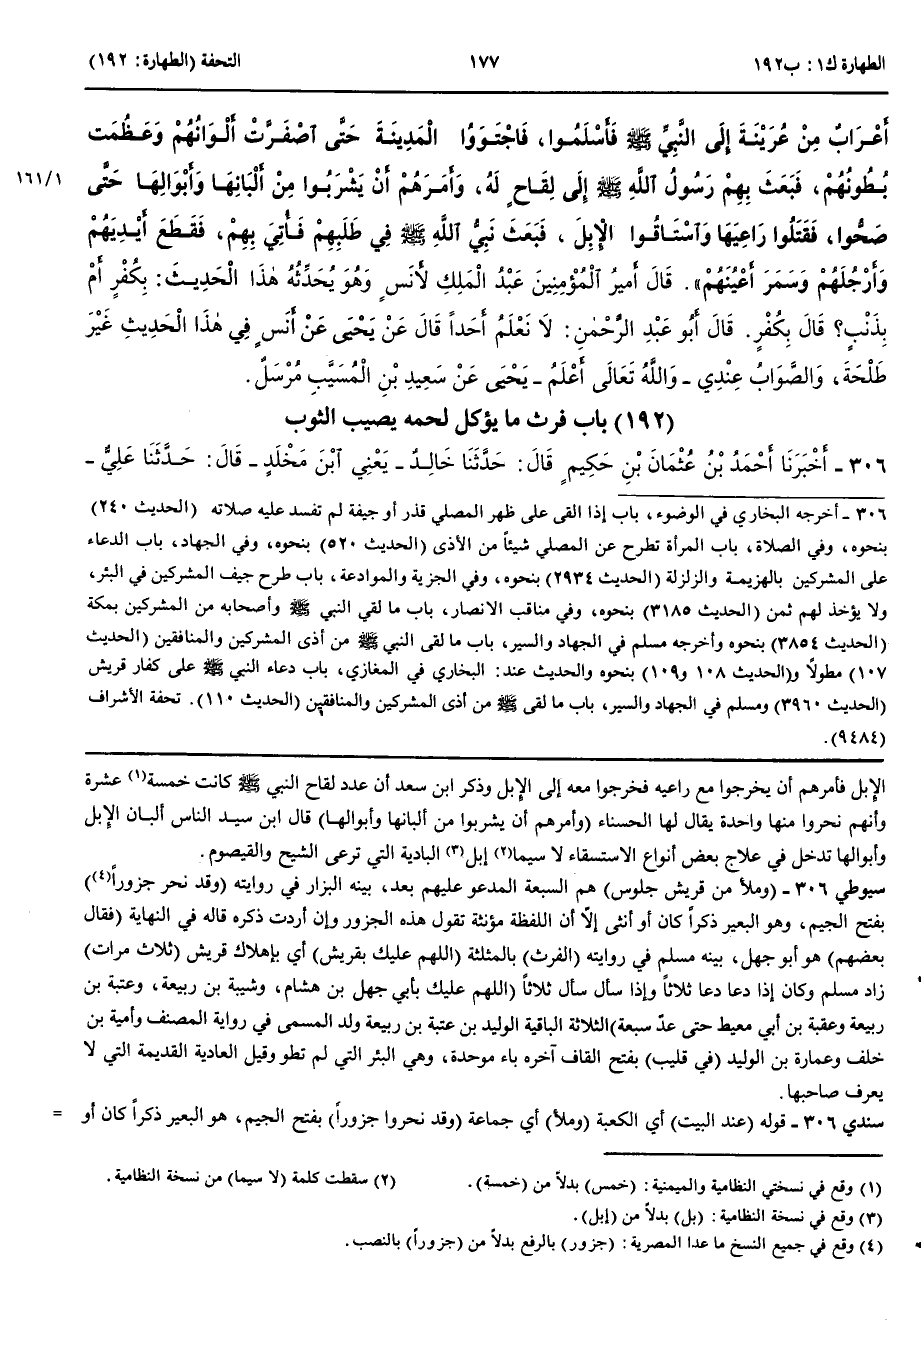 الطهارة ك١: ب١٩٢ ١٧٧ التحفة (الطهارة: ١٩٢)
أَعْرَابٌ مِنْ عُرَيْنَةَ إِلَى النَّبِيِّ ﷺ فَأَسْلَمُوا، فَاجْتَوَوُا الْمَدِينَةَ حَتَّى ٱصْفَرَّتْ أَلْوَانُهُمْ وَعَظُمَتْ
بُطُونُهُمْ، فَبَعَثَ بِهِمْ رَسُولُ ٱللَّهِ ﷺ إِلَى لِقَاحٍ لَهُ، وَأَمَرَهُمْ أَنْ يَشْرَبُوا مِنْ أَلْبَانِهَا وَأَبْوَالِهَا حَتَّى ١٦١/١
صَحُّوا، فَقَتَلُوا رَاعِيَهَا وَٱسْتَاقُوا الإِبِلَ، فَبَعَثَ نَبِيُّ ٱللَّهِ ﷺ فِي طَلَبِهِمْ فَأُتِيَ بِهِمْ، فَقَطَعَ أَيْدِيَهُمْ
وَأَرْجُلَهُمْ وَسَمَرَ أَعْيُنَهُمْ». قَالَ أَمِيرُ ٱلْمُؤْمِنِينَ عَبْدُ الْمَلِكِ لأَنَسٍ وَهُوَ يُحَدِّثُهُ هٰذَا الْحَدِيثَ: بِكُفْرٍ أَمْ
بِذَنْبٍ؟ قَالَ بِكُفْرٍ. قَالَ أَبُو عَبْدِ الرَّحْمٰنِ: لاَ نَعْلَمُ أَحَداً قَالَ عَنْ يَحْيَى عَنْ أَنَسٍ فِي هٰذَا الْحَدِيثِ غَيْرَ
طَلْحَةَ، وَالصَّوَابُ عِنْدِي ـ وَاللَّهُ تَعَالَى أَعْلَمُ ـ يَحْيَى عَنْ سَعِيدِ بْنِ الْمُسَيَّبِ مُرْسَلٌ.
(١٩٢) باب فرث ما يؤكل لحمه يصيب الثوب
٣٠٦ ـ أَخْبَرَنَا أَحْمَدُ بْنُ عُثْمَانَ بْنِ حَكِيمٍ قَالَ: حَدَّثَنَا خَالِدٌ ـ يَعْنِي ٱبْنَ مَخْلَدٍ ـ قَالَ: حَدَّثَنَا عَلِيٌّ ـ
٣٠٦ ـ أخرجه البخاري في الوضوء، باب إذا القى على ظهر المصلي قذر أو جيفة لم تفسد عليه صلاته (الحديث ٢٤٠)
بنحوه، وفي الصلاة، باب المرأة تطرح عن المصلي شيئاً من الأذى (الحديث ٥٢٠) بنحوه، وفي الجهاد، باب الدعاء
على المشركين بالهزيمة والزلزلة (الحديث ٢٩٣٤) بنحوه، وفي الجزية والموادعة، باب طرح جيف المشركين في البئر،
ولا يؤخذ لهم ثمن (الحديث ٣١٨٥) بنحوه، وفي مناقب الانصار، باب ما لقي النبي ﷺ وأصحابه من المشركين بمكة
(الحديث ٣٨٥٤) بنحوه وأخرجه مسلم في الجهاد والسير، باب ما لقى النبي ﷺ من أذى المشركين والمنافقين (الحديث
١٠٧) مطولًا و(الحديث ١٠٨ و١٠٩) بنحوه والحديث عند: البخاري في المغازي، باب دعاء النبي ﷺ على كفار قريش
(الحديث ٣٩٦٠) ومسلم في الجهاد والسير، باب ما لقى ﷺ من أذى المشركين والمنافقين (الحديث ١١٠). تحفة الأشراف
(٩٤٨٤).
الإبل فأمرهم أن يخرجوا مع راعيه فخرجوا معه إلى الإبل وذكر ابن سعد أن عدد لقاح النبي ﷺ كانت خمسة(١) عشرة
وأنهم نحروا منها واحدة يقال لها الحسناء (وأمرهم أن يشربوا من ألبانها وأبوالها) قال ابن سيد الناس ألبان الإبل
وأبوالها تدخل في علاج بعض أنواع الاستسقاء لا سيما(٢) إبل(٣) البادية التي ترعى الشيح والقيصوم.
سيوطي ٣٠٦ ـ (وملأ من قريش جلوس) هم السبعة المدعو عليهم بعد، بينه البزار في روايته (وقد نحر جزوراً(٤))
بفتح الجيم، وهو البعير ذكراً كان أو أنثى إلاّ أن اللفظة مؤنثة تقول هذه الجزور وإن أردت ذكره قاله في النهاية (فقال
بعضهم) هو أبو جهل، بينه مسلم في روايته (الفرث) بالمثلثة (اللهم عليك بقريش) أي بإهلاك قريش (ثلاث مرات)
زاد مسلم وكان إذا دعا دعا ثلاثاً وإذا سأل سأل ثلاثاً (اللهم عليك بأبي جهل بن هشام، وشيبة بن ربيعة، وعتبة بن
ربيعة وعقبة بن أبي معيط حتى عدّ سبعة)الثلاثة الباقية الوليد بن عتبة بن ربيعة ولد المسمى في رواية المصنف وأمية بن
خلف وعمارة بن الوليد (في قليب) بفتح القاف آخره باء موحدة، وهي البئر التي لم تطو وقيل العادية القديمة التي لا
يعرف صاحبها.
سندي ٣٠٦ ـ قوله (عند البيت) أي الكعبة (وملأ) أي جماعة (وقد نحروا جزوراً) بفتح الجيم، هو البعير ذكراً كان أو =
(١) وقع في نسختي النظامية والميمنية: (خمس) بدلاً من (خمسة). (٢) سقطت كلمة (لا سيما) من نسخة النظامية.
(٣) وقع في نسخة النظامية: (بل) بدلاً من (إبل).
(٤) وقع في جميع النسخ ما عدا المصرية: (جزور) بالرفع بدلاً من (جزوراً) بالنصب.